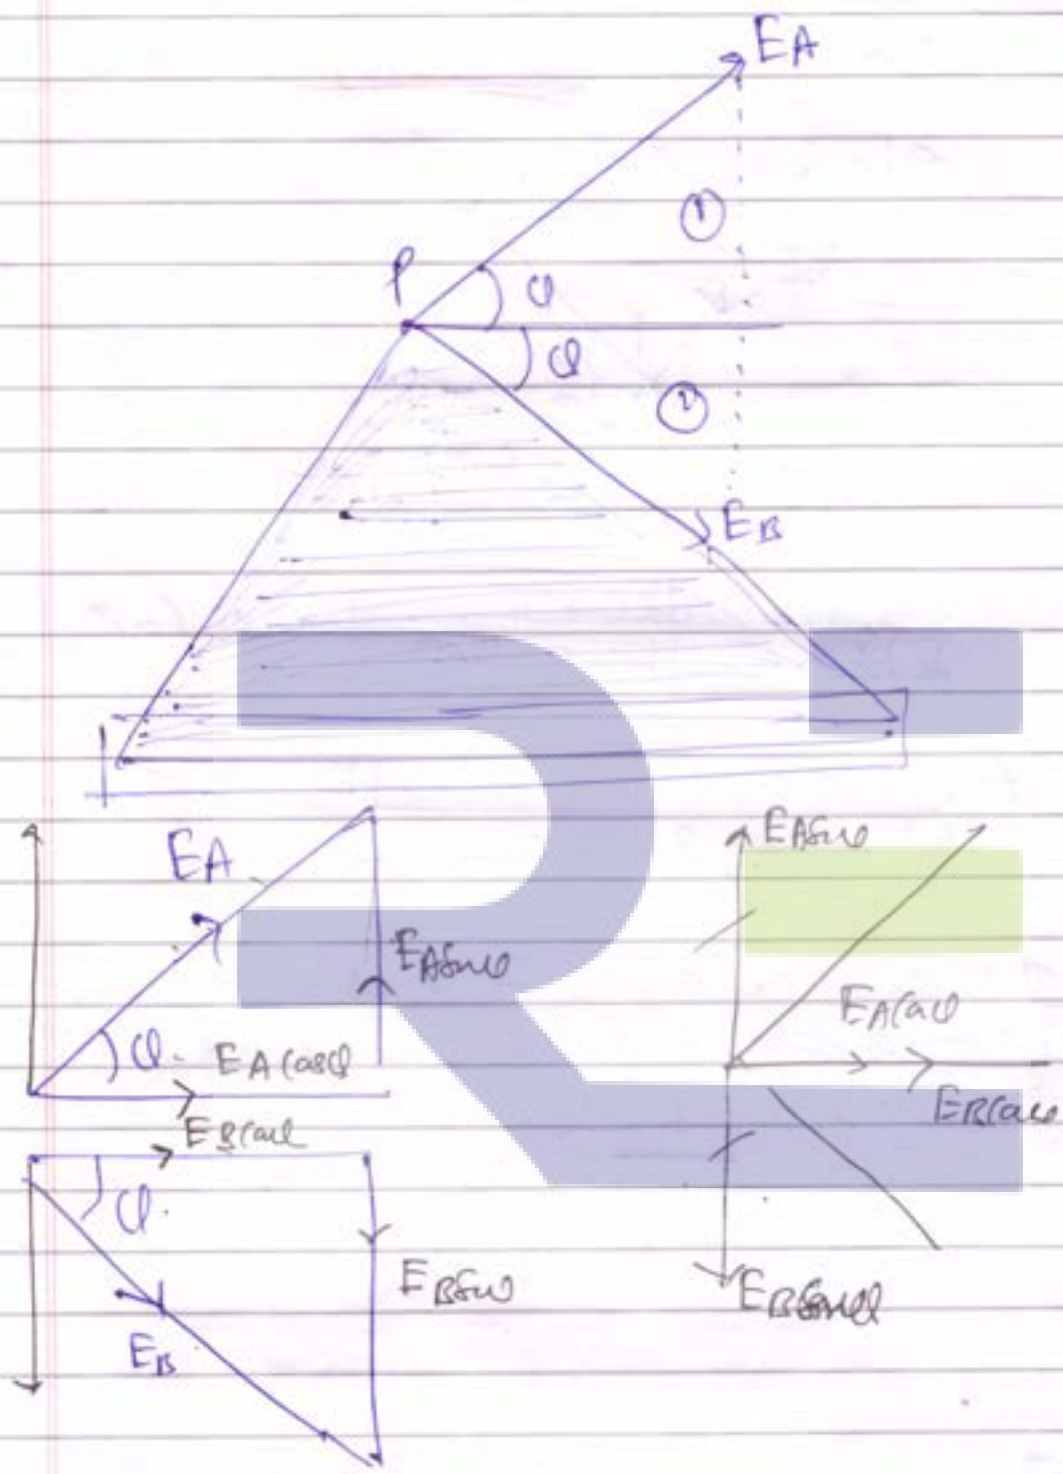 EA
①
P
φ
φ
②
EB
EA
EA Sinφ
φ
EA Cosφ
EB Cosφ
φ
EB Sinφ
EB
EA Sinφ
EA Cosφ
EB Cosφ
EB Sinφ